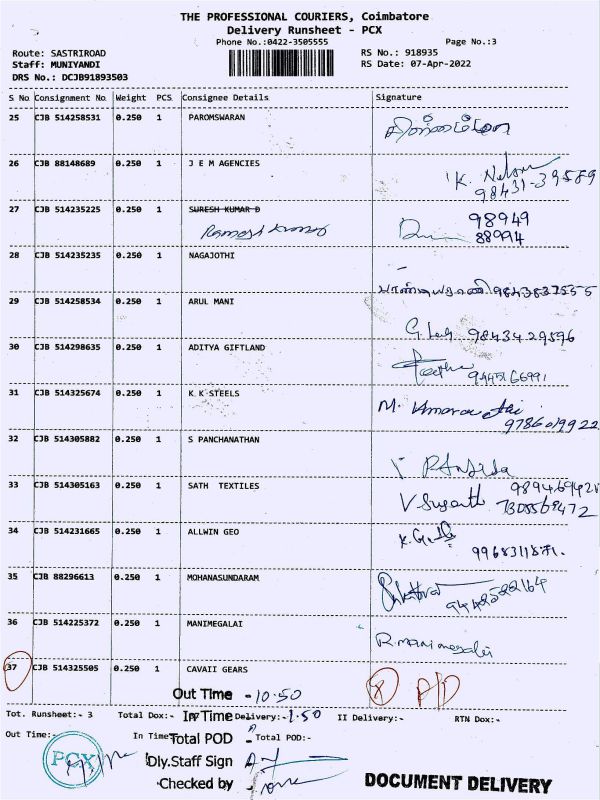 THE PROFESSIONAL COURIERS, Coimbatore
Delivery Runsheet - PCX
Phone No.:0422-3505555 Page No.:3
Route: SASTRIROAD RS No.: 918935
Staff: MUNIYANDI RS Date: 07-Apr-2022
DRS No.: DCJB91893503
S No Consignment No. Weight PCS Consignee Details Signature
25 CJB 514258531 0.250 1 PAROMSWARAN
26 CJB 88148689 0.250 1 J E M AGENCIES K. Nelson
98431-39589
27 CJB 514235225 0.250 1 SURESH KUMAR D 98949
Ramesh Kumar 88994
28 CJB 514235235 0.250 1 NAGAJOTHI
9843837555
29 CJB 514258534 0.250 1 ARUL MANI
9843429596
30 CJB 514298635 0.250 1 ADITYA GIFTLAND
31 CJB 514325674 0.250 1 K K STEELS M.
9786019922
32 CJB 514305882 0.250 1 S PANCHANATHAN
33 CJB 514305163 0.250 1 SATH TEXTILES
V Suganth 7305569472
34 CJB 514231665 0.250 1 ALLWIN GEO
35 CJB 88296613 0.250 1 MOHANASUNDARAM
36 CJB 514225372 0.250 1 MANIMEGALAI
R.manimegalai
37 CJB 514325505 0.250 1 CAVAII GEARS A/D
Out Time - 10.50
Tot. Runsheet:- 3 Total Dox:- In Time Delivery:- 1.50 II Delivery:- RTN Dox:-
Out Time:- In Time Total POD - Total POD:-
PCX
Dly.Staff Sign
Checked by -
DOCUMENT DELIVERY